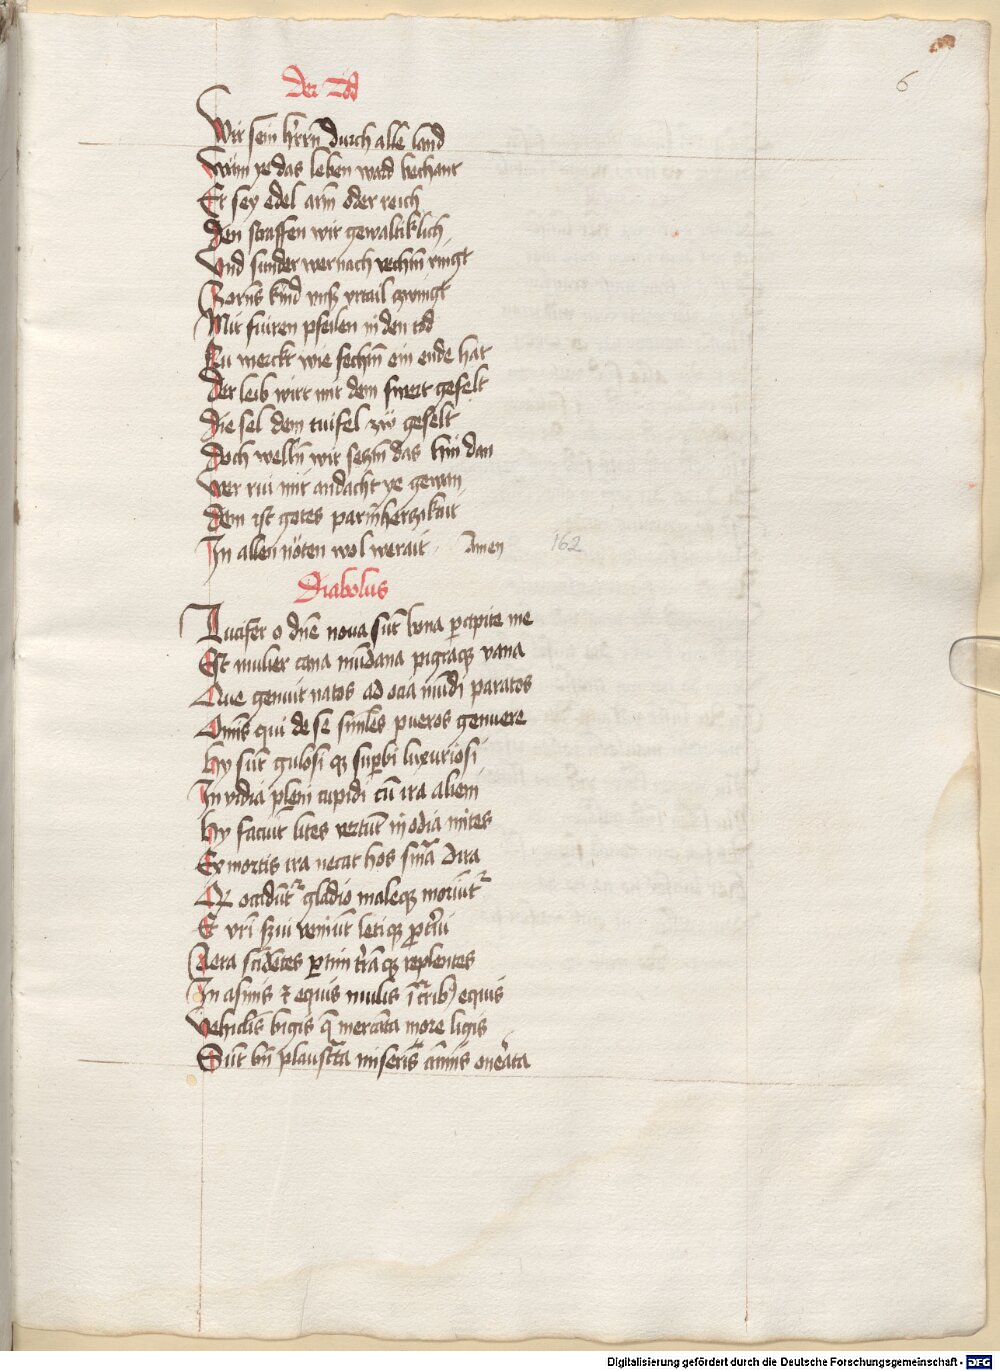 6
Der Tod
Wir sein herrn durch alle land
Wann ye das leben ward bechant
Er sey edel arm oder reich
Den straffen wir gewaltiklich
Und sunder wer nach rechtm ringt
Zorns kind unß urtail zwingt
Mit fiuren pfeilen in den tod
Nu merckt wie sechm ein ende hat
Der leib wirt mit dem swert gefelt
Die sel dem tuifel zuo geselt
Doch welln wir setzm das hin dan
Wer rui mit andacht ye gewan
Dem ist gotes parmhertzikait
In allen nöten wol werait Amen
162
Diabolus
Lucifer o dñe nova sūt bona percipite me
Est mulier cana mūdana pigraque vana
Que genuit natos ad ocia mūdi paratos
Omīs qui de se similes pueros genuere
Hy sūt gulosi que superbi luxuriosi
Invidia pleni cupidi cū ira alieni
Hy faciūt lites vertūt in odia mites
Ex mortis ira necat hos sentencia dira
Qz occidūtur gladio maleque moriūtur
Et vr̄i servi veniūt letique protervi
Aera scidētes partim terrāque replentes
In asinis et equis mulis equis
Vehiclis bigis mercata more ligis
Sūt bn̄ plaustrata miseris animis onerata
Digitalisierung gefördert durch die Deutsche Forschungsgemeinschaft - DFG